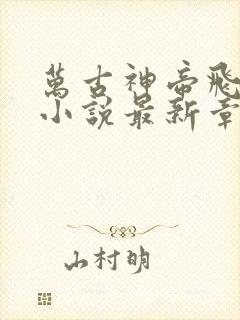 萬古神帝飛
小說最新章
山村明